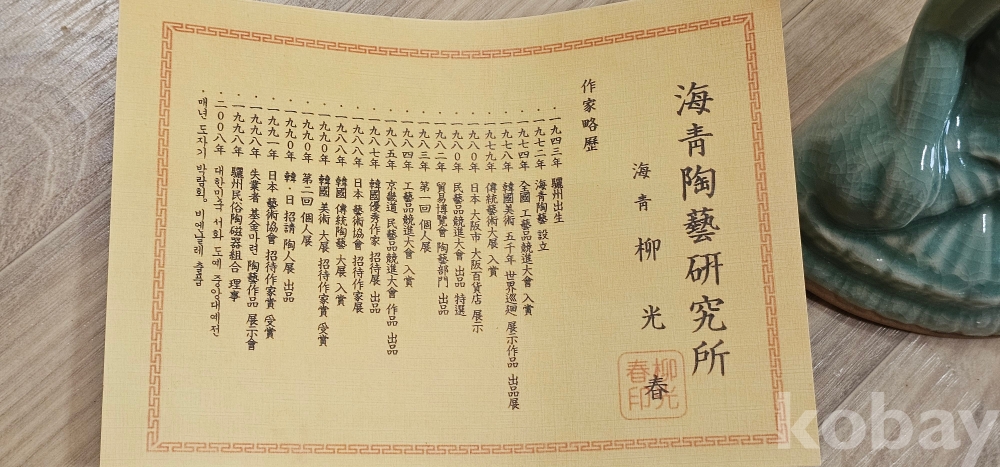 海靑陶藝硏究所
海靑 柳光春
柳光春印
作家略歷
· 一九四三年 驪州出生
· 一九七二年 海靑陶藝 設立
· 一九七四年 全國 工藝品競進大會 入賞
· 一九七八年 韓國美術 五千年 世界巡廻 展示作品 出品展
· 一九七九年 傳統藝術大展 入賞
· 一九八0年 日本 大阪市 · 大阪百貨店 展示
· 一九八0年 民藝品競進大會 出品 特選
· 一九八二年 貿易博覽會 陶藝部門 出品
· 一九八三年 第一回 個人展
· 一九八四年 工藝品競進大會 入賞
· 一九八五年 京畿道 民藝品競進大會 作品 出品
· 一九八七年 韓國優秀作家 招待展 出品
· 一九八八年 日本 藝術協會 招待作家展
· 一九八八年 韓國 傳統陶藝 大展 入賞
· 一九九0年 韓國 美術 大展 招待作家賞 受賞
· 一九九0年 第二回 個人展
· 一九九0年 韓 · 日 招請 陶人展 出品
· 一九九一年 日本 藝術協會 招待作家賞 受賞
· 一九九八年 失業者 基金마련 陶藝作品 展示會
· 一九九八年 驪州民俗陶磁器組合 理事
· 二00八年 대한민국 서화 도예 중앙대예전
· 매년 도자기 박람회, 비엔날레 출품
kobay